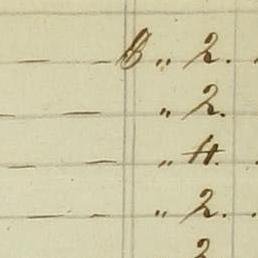 — — ₿ „ 2.
— — „ 2.
— — „ 4.
— — „ 2.
2